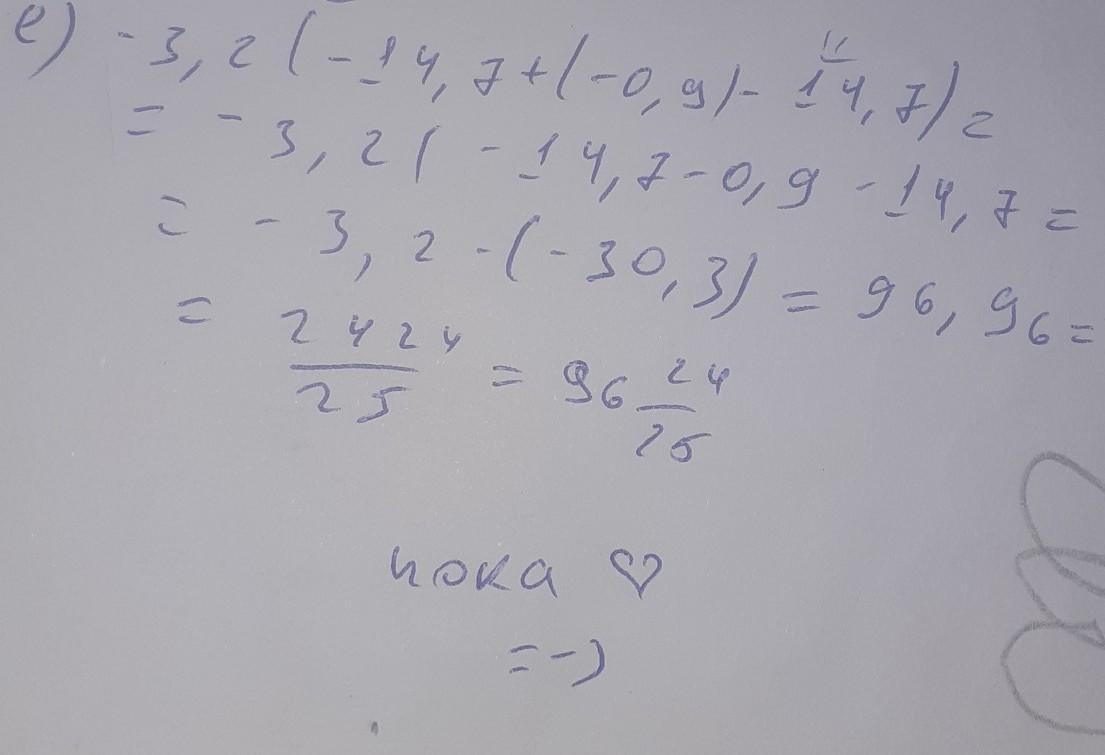 е) -3,2(-14,7+(-0,9)-14,7)=
= -3,2(-14,7-0,9-14,7=
= -3,2·(-30,3)=96,96=
= 2424/25 = 96 24/25
пока ♡
=-)